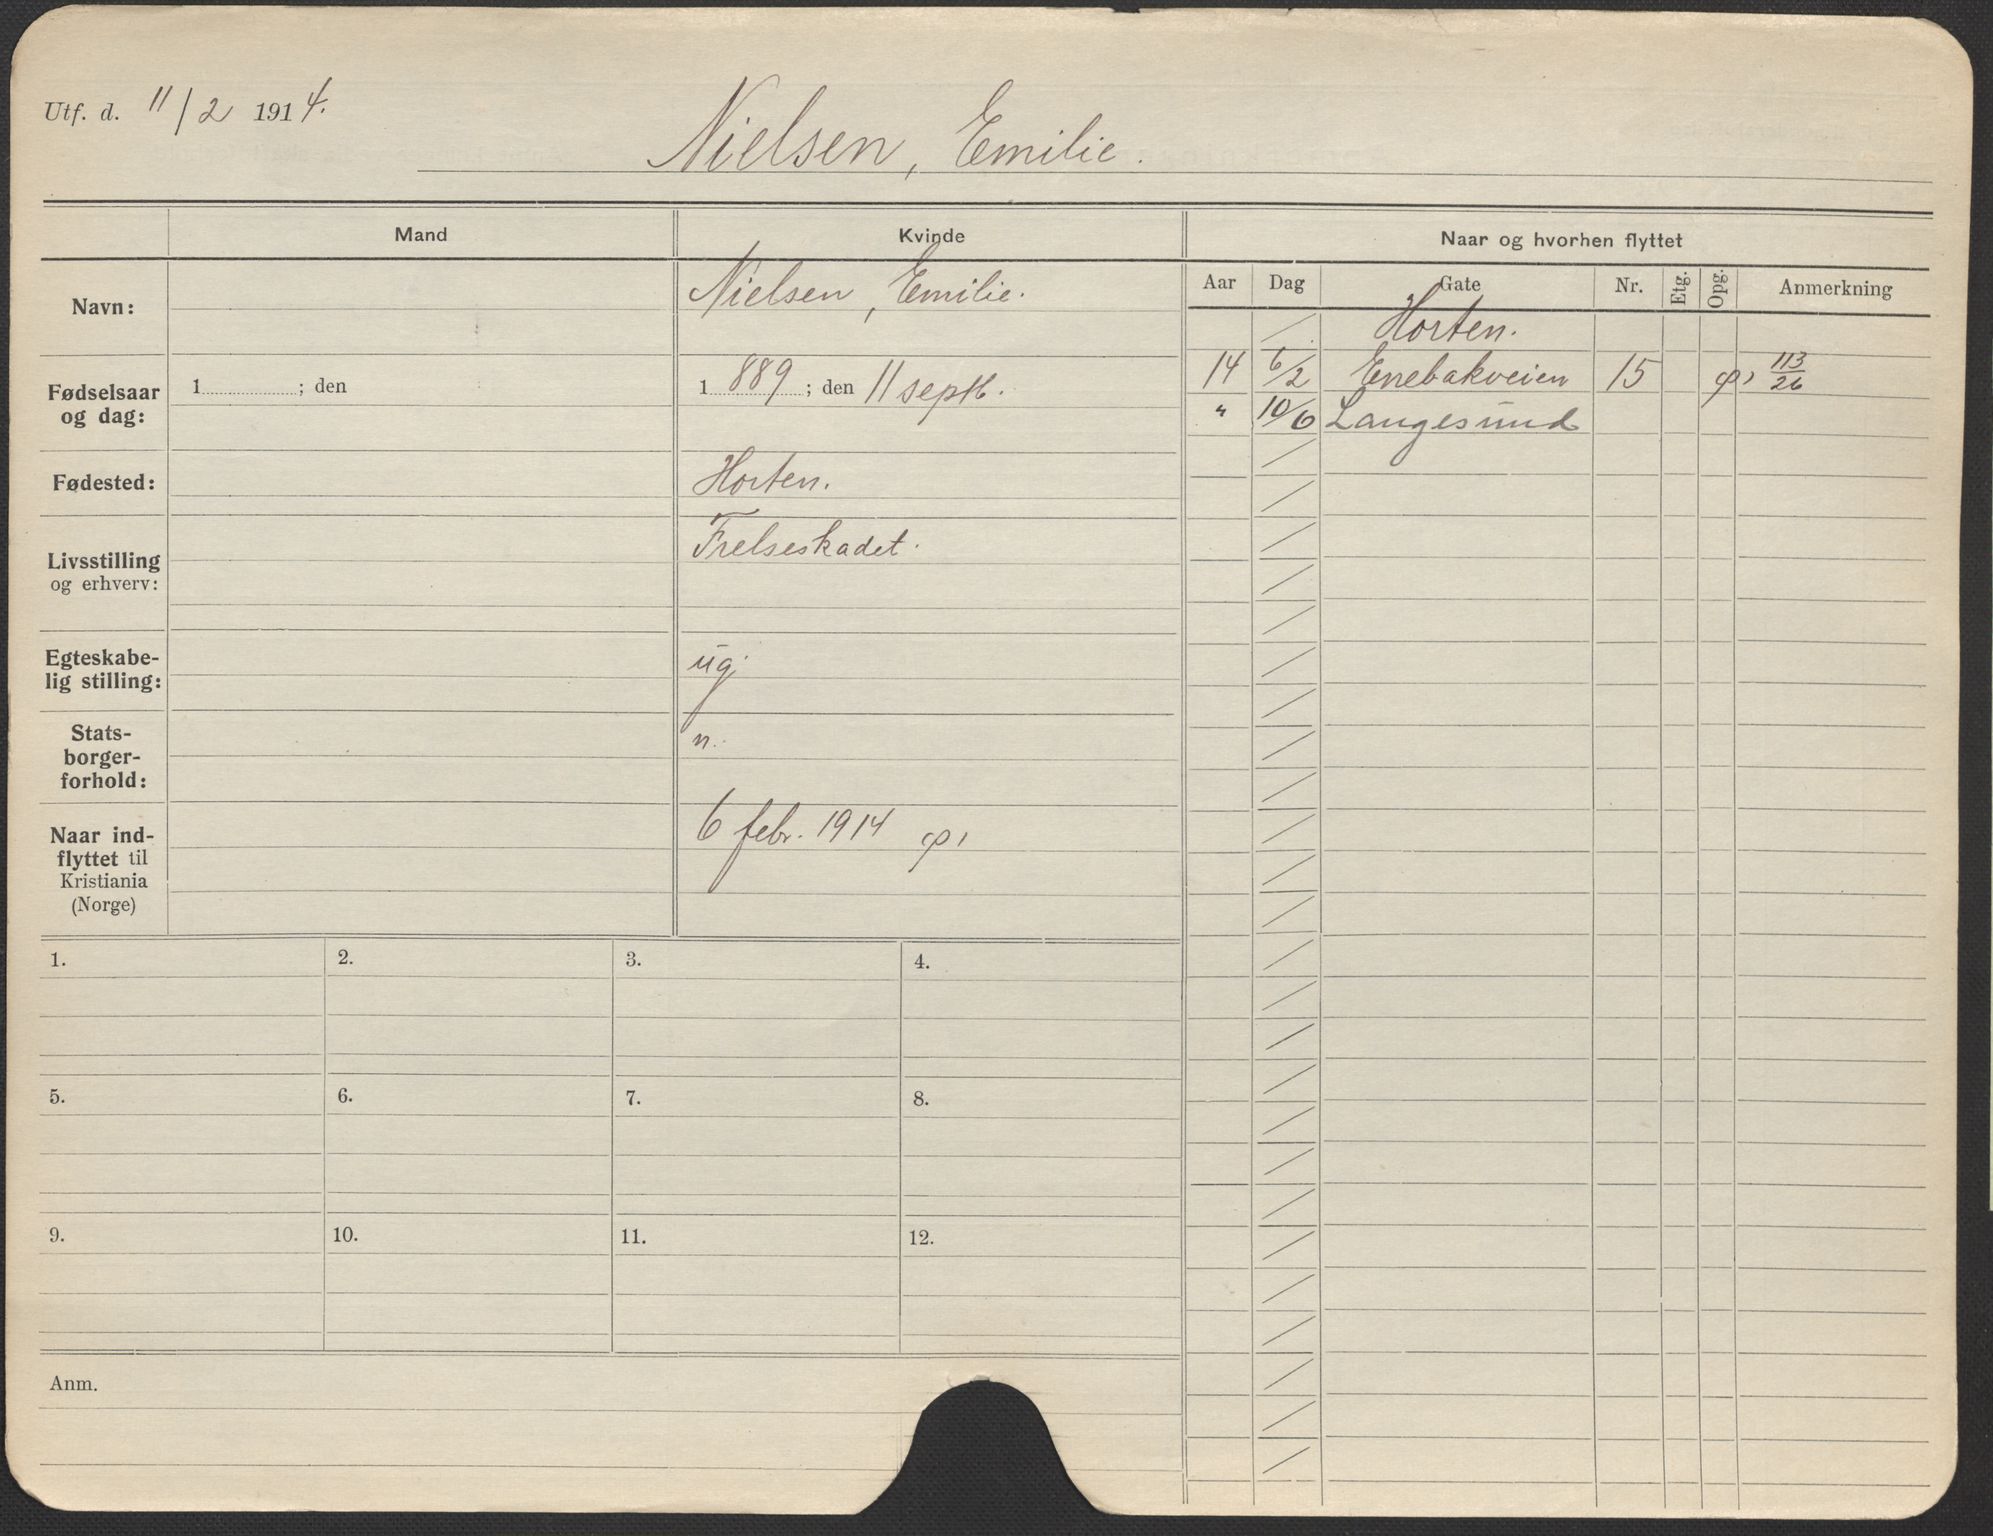 Utf. d. 11/2 1914.
Nielsen, Emilie.
Mand
Kvinde
Naar og hvorhen flyttet
Navn:
Nielsen, Emilie.
Aar Dag Gate Nr. Etg. Opg. Anmerkning
Horten.
14 6/2 Enebakveien 15 113/26
" 10/6 Langesund
Fødselsaar
og dag:
1 ; den
1 889 ; den 11 septb.
Fødested:
Horten.
Livsstilling
og erhverv:
Frelseskadet.
Egteskabe-
lig stilling:
ug.
Stats-
borger-
forhold:
n.
Naar ind-
flyttet til
Kristiania
(Norge)
6 febr. 1914
1. 2. 3. 4.
5. 6. 7. 8.
9. 10. 11. 12.
Anm.